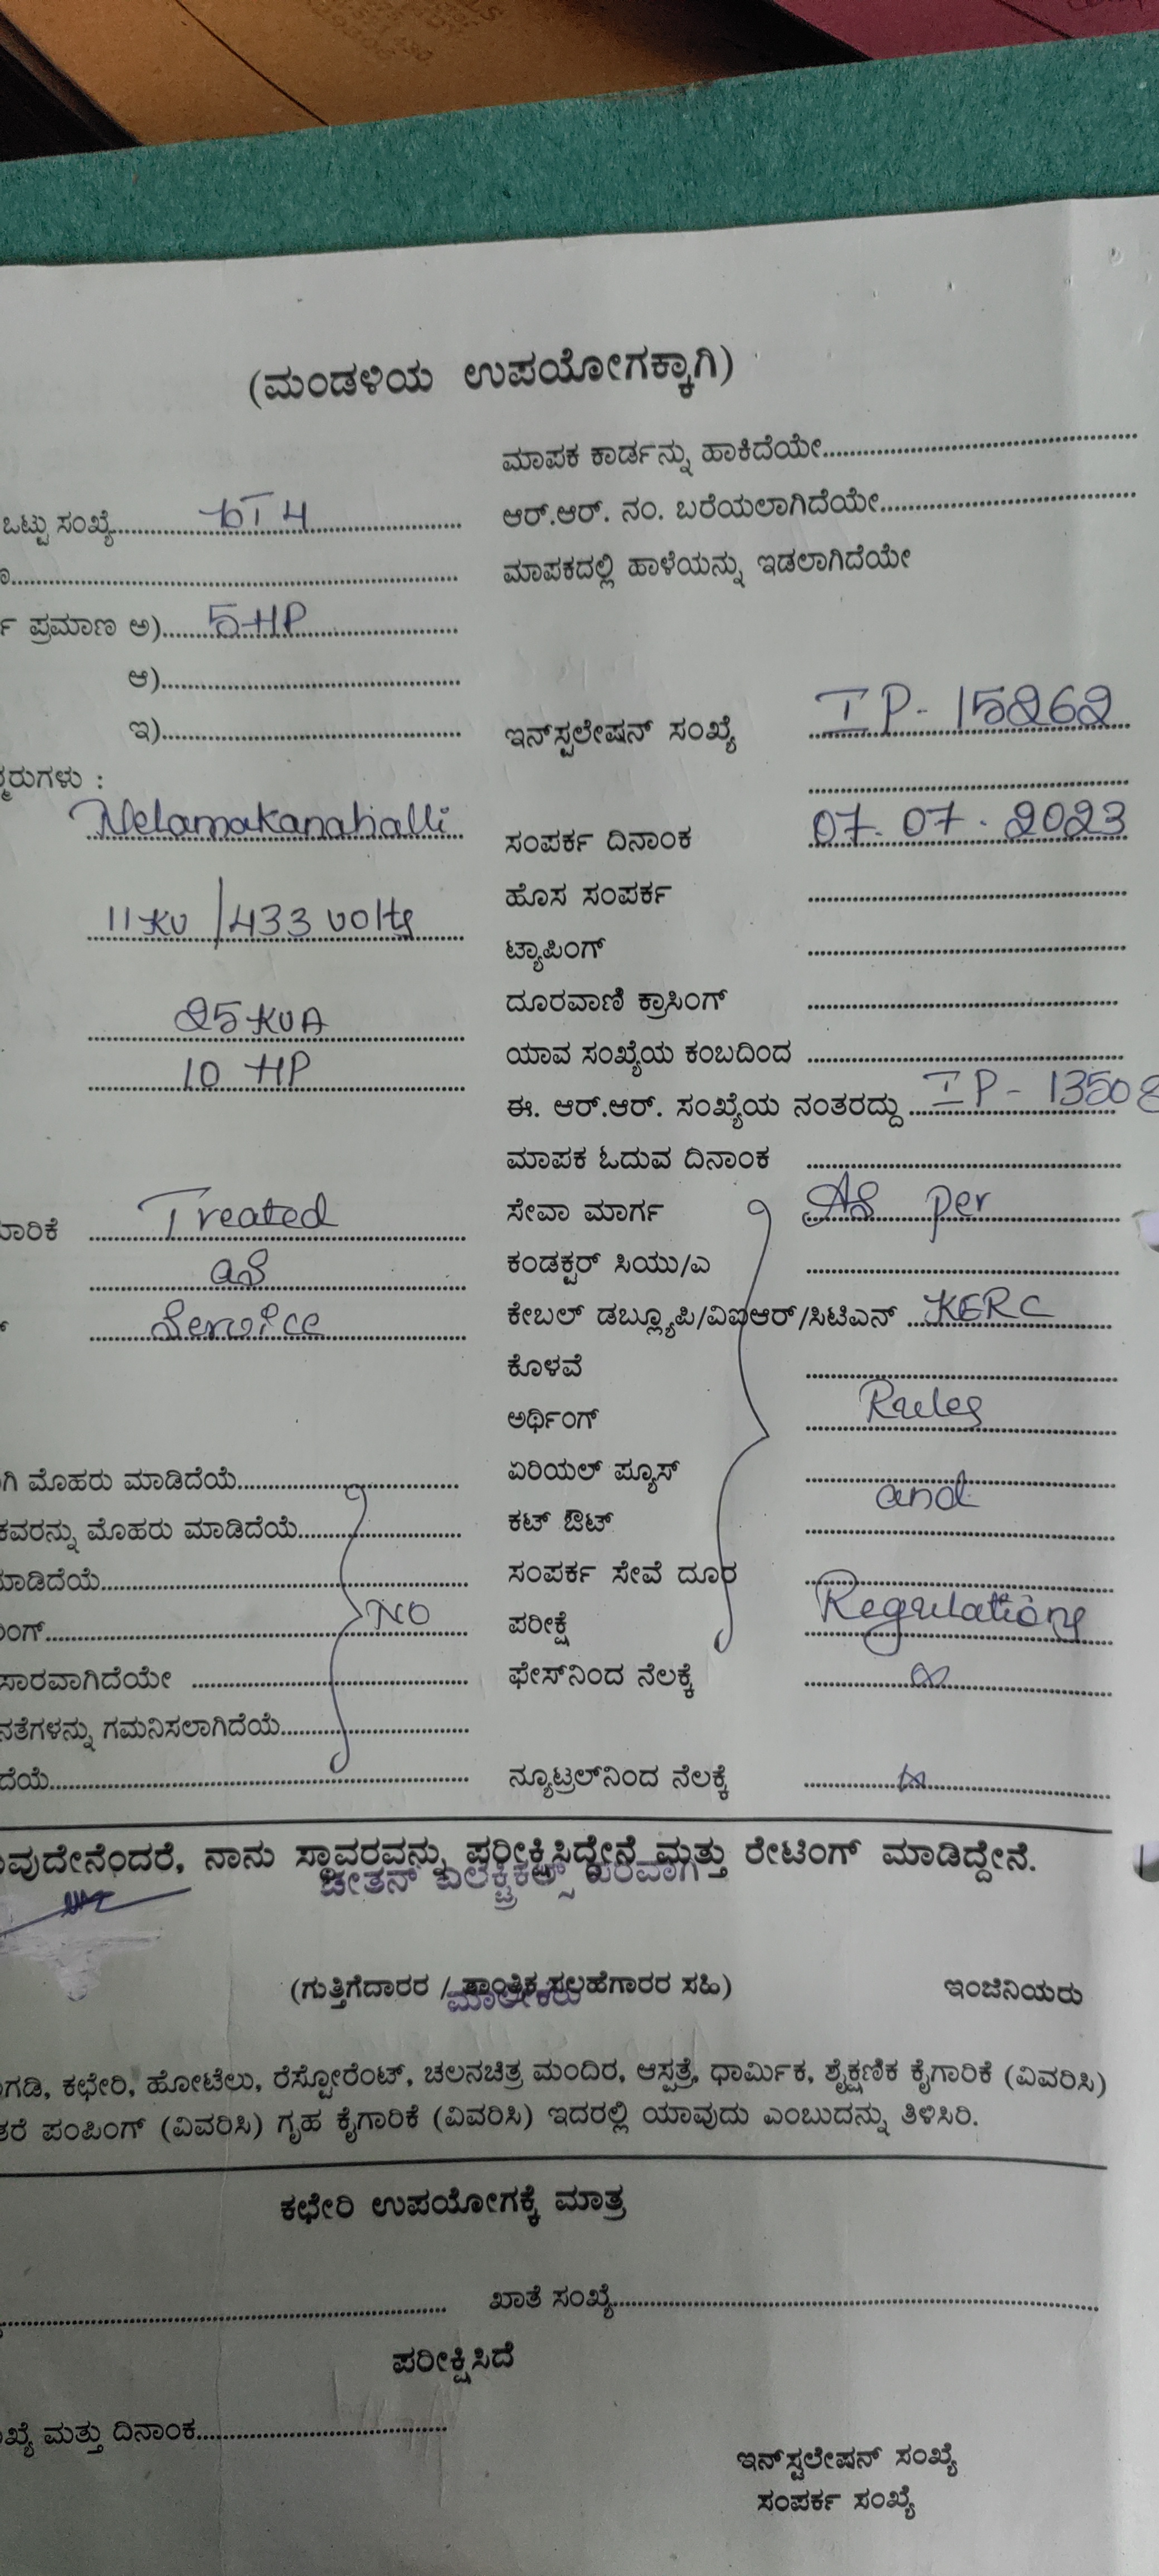 (ಮಂಡಳಿಯ ಉಪಯೋಗಕ್ಕಾಗಿ)
ಮಾಪಕ ಕಾರ್ಡನ್ನು ಹಾಕಿದೆಯೇ
ಒಟ್ಟು ಸಂಖ್ಯೆ
ಆರ್.ಆರ್. ನಂ. ಬರೆಯಲಾಗಿದೆಯೇ
ಮಾಪಕದಲ್ಲಿ ಹಾಳೆಯನ್ನು ಇಡಲಾಗಿದೆಯೇ
ಪ್ರಮಾಣ ಅ) 5 HP
ಆ)
ಇ)
ಇನ್‌ಸ್ಟಲೇಷನ್ ಸಂಖ್ಯೆ IP-15262
Nelamakanahalli
ಸಂಪರ್ಕ ದಿನಾಂಕ 07.07.2023
ಹೊಸ ಸಂಪರ್ಕ
11 KV / 433 volts
ಟ್ಯಾಪಿಂಗ್
ದೂರವಾಣಿ ಕ್ರಾಸಿಂಗ್
25 KVA
ಯಾವ ಸಂಖ್ಯೆಯ ಕಂಬದಿಂದ
10 HP
ಈ. ಆರ್.ಆರ್. ಸಂಖ್ಯೆಯ ನಂತರದ್ದು IP-13508
ಮಾಪಕ ಓದುವ ದಿನಾಂಕ
Treated
ಸೇವಾ ಮಾರ್ಗ As per
as
ಕಂಡಕ್ಟರ್ ಸಿಯು/ಎ
Service
ಕೇಬಲ್ ಡಬ್ಲ್ಯೂಪಿ/ವಿಐಆರ್/ಸಿಟಿಎನ್ KERC
ಕೊಳವೆ
ಅರ್ಥಿಂಗ್ Rules
ಮೊಹರು ಮಾಡಿದೆಯೆ
ಏರಿಯಲ್ ಪ್ಯೂಸ್
and
ಕವರನ್ನು ಮೊಹರು ಮಾಡಿದೆಯೆ
ಕಟ್ ಔಟ್
ಸಂಪರ್ಕ ಸೇವೆ ದೂರ
NO
ಪರೀಕ್ಷೆ Regulations
ಫೇಸ್‌ನಿಂದ ನೆಲಕ್ಕೆ
ಗಮನಿಸಲಾಗಿದೆಯೆ
ನ್ಯೂಟ್ರಲ್‌ನಿಂದ ನೆಲಕ್ಕೆ
ನಾನು ಸ್ಥಾವರವನ್ನು ಪರೀಕ್ಷಿಸಿದ್ದೇನೆ ಮತ್ತು ರೇಟಿಂಗ್ ಮಾಡಿದ್ದೇನೆ.
(ಗುತ್ತಿಗೆದಾರರ / ತಾಂತ್ರಿಕ ಸಲಹೆಗಾರರ ಸಹಿ) ಇಂಜಿನಿಯರು
ಕಛೇರಿ, ಹೋಟೆಲು, ರೆಸ್ಟೋರೆಂಟ್, ಚಲನಚಿತ್ರ ಮಂದಿರ, ಆಸ್ಪತ್ರೆ, ಧಾರ್ಮಿಕ, ಶೈಕ್ಷಣಿಕ ಕೈಗಾರಿಕೆ (ವಿವರಿಸಿ)
ಪಂಪಿಂಗ್ (ವಿವರಿಸಿ) ಗೃಹ ಕೈಗಾರಿಕೆ (ವಿವರಿಸಿ) ಇದರಲ್ಲಿ ಯಾವುದು ಎಂಬುದನ್ನು ತಿಳಿಸಿರಿ.
ಕಛೇರಿ ಉಪಯೋಗಕ್ಕೆ ಮಾತ್ರ
ಖಾತೆ ಸಂಖ್ಯೆ
ಪರೀಕ್ಷಿಸಿದೆ
ಮತ್ತು ದಿನಾಂಕ
ಇನ್‌ಸ್ಟಲೇಷನ್ ಸಂಖ್ಯೆ
ಸಂಪರ್ಕ ಸಂಖ್ಯೆ